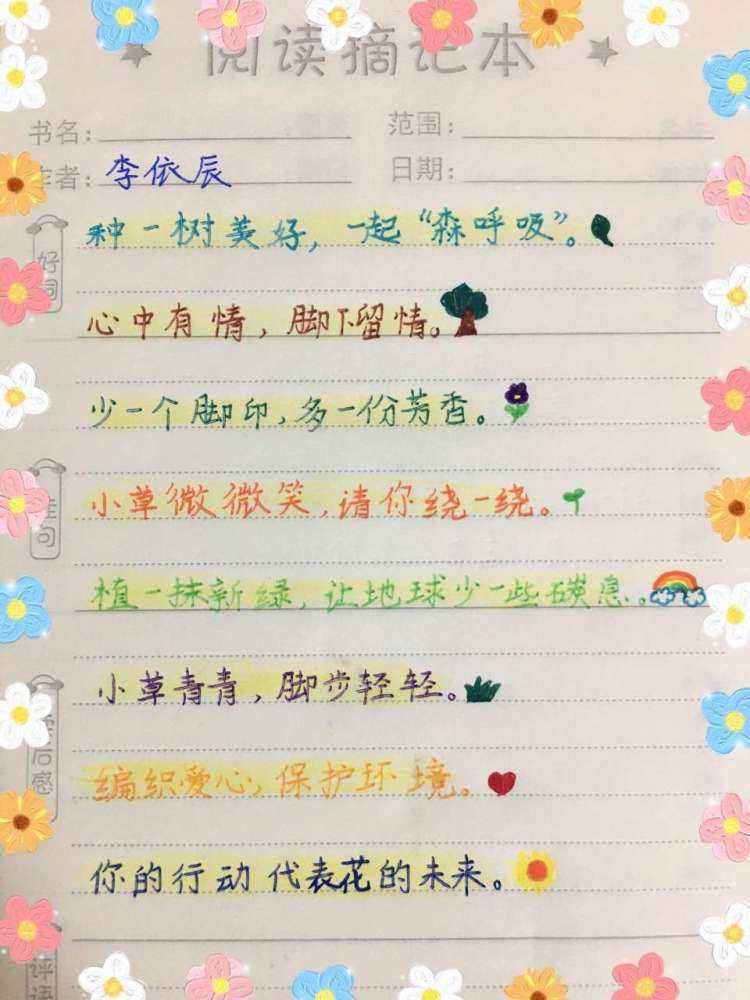 阅读摘记本
书名：
范围：
作者：李依辰
日期：
好词
种一树美好，一起“森呼吸”。
心中有情，脚下留情。
少一个脚印，多一份芳香。
佳句
小草微微笑，请你绕一绕。
植一抹新绿，让地球少一些碳息。
小草青青，脚步轻轻。
读后感
编织爱心，保护环境。
你的行动代表花的未来。
评语